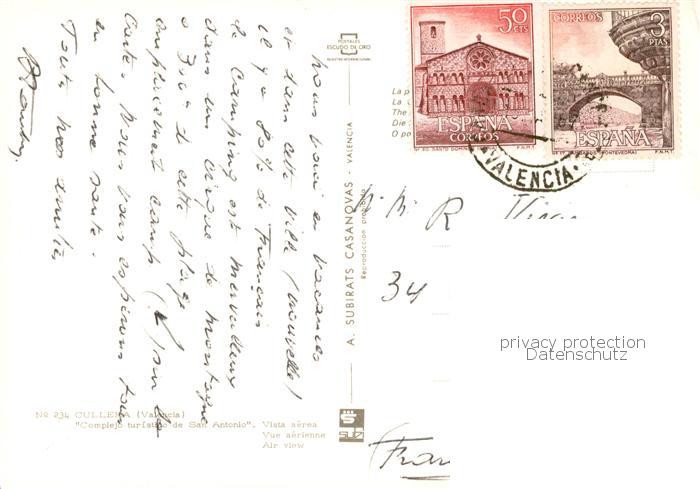 Nous voici en vacances
et dans cette ville (nouvelle)
il y a 80% de Français
le Camping est merveilleux
dans un cirque de montagne
a 3 de cette plage
emplacement camp. sur la
Carte. Nous vous espérons tous
en bonne santé.
Toutes nos amitiés
POSTALES
ESCUDO DE ORO
50
CTS
ESPAÑA
CORREOS
CORREOS
3
PTAS
ESPAÑA
F.N.M.T.
F.N.M.T.
VALENCIA
La p
La
The
Die
O po
A. SUBIRATS CASANOVAS - VALENCIA
Reproducción prohibida
R.
34
(Fran
privacy protection
Datenschutz
No 234 CULLERA (Valencia)
"Complejo turístico de San Antonio". Vista aérea
Vue aérienne
Air view